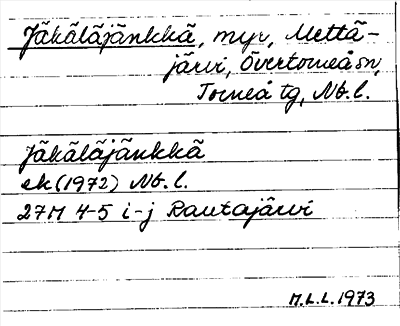 Jäkäläjänkkä, myr, Mettä-
järvi, Övertorneå sn,
Torneå tg, Nb.l.
Jäkäläjänkkä
ek (1972) Nb.l.
27M 4-5 i-j Rautajärvi
M.L.L. 1973